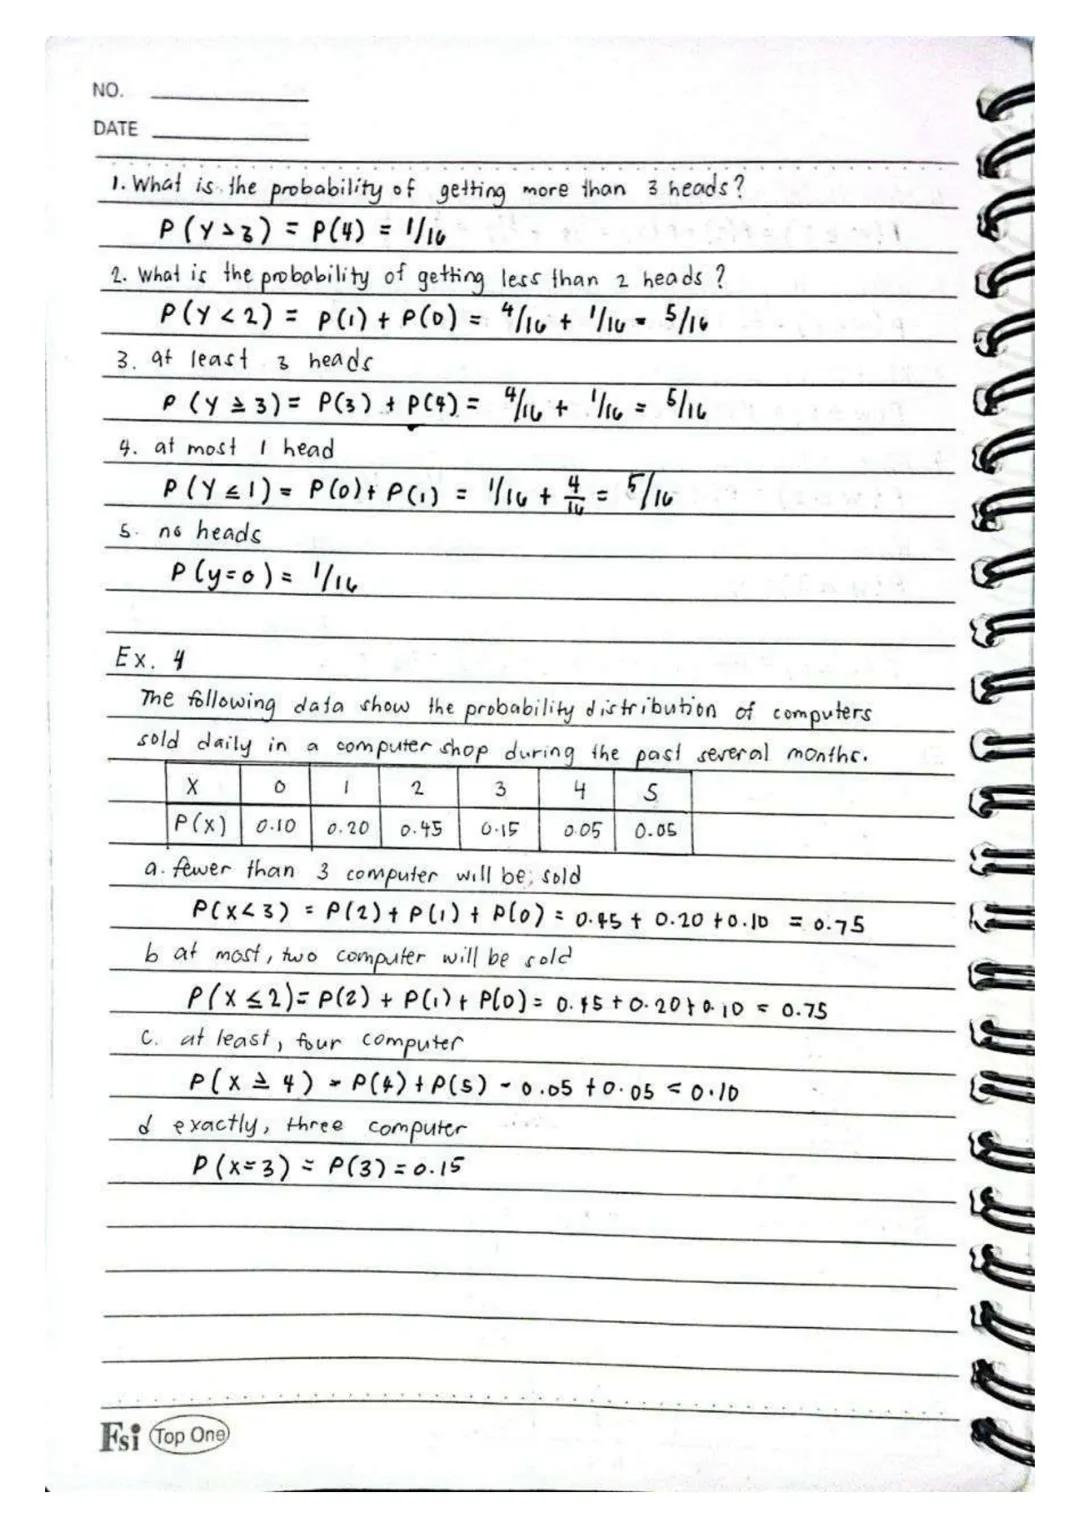 NO.
DATE
1. What is the probability of getting more than 3 heads?
P(Y>3) = P(4) = 1/16
2. What is the probability of getting less than 2 heads?
P(Y<2) = P(1) + P(0) = 4/16 + 1/16 = 5/16
3. at least 3 heads
P(Y≥3) = P(3) + P(4) = 4/16 + 1/16 = 5/16
4. at most 1 head
P(Y≤1) = P(0) + P(1) = 1/16 + 4/16 = 5/16
5. no heads
P(y=0) = 1/16
Ex. 4
The following data show the probability distribution of computers
sold daily in a computer shop during the past several months.
X 0 1 2 3 4 5
P(x) 0.10 0.20 0.45 0.15 0.05 0.05
a. fewer than 3 computer will be sold
P(X<3) = P(2) + P(1) + P(0) = 0.45 + 0.20 + 0.10 = 0.75
b at most, two computer will be sold
P(X≤2) = P(2) + P(1) + P(0) = 0.45 + 0.20 + 0.10 = 0.75
C. at least, four computer
P(X≥4) = P(4) + P(5) = 0.05 + 0.05 = 0.10
d exactly, three computer
P(x=3) = P(3) = 0.15
Fsi Top One